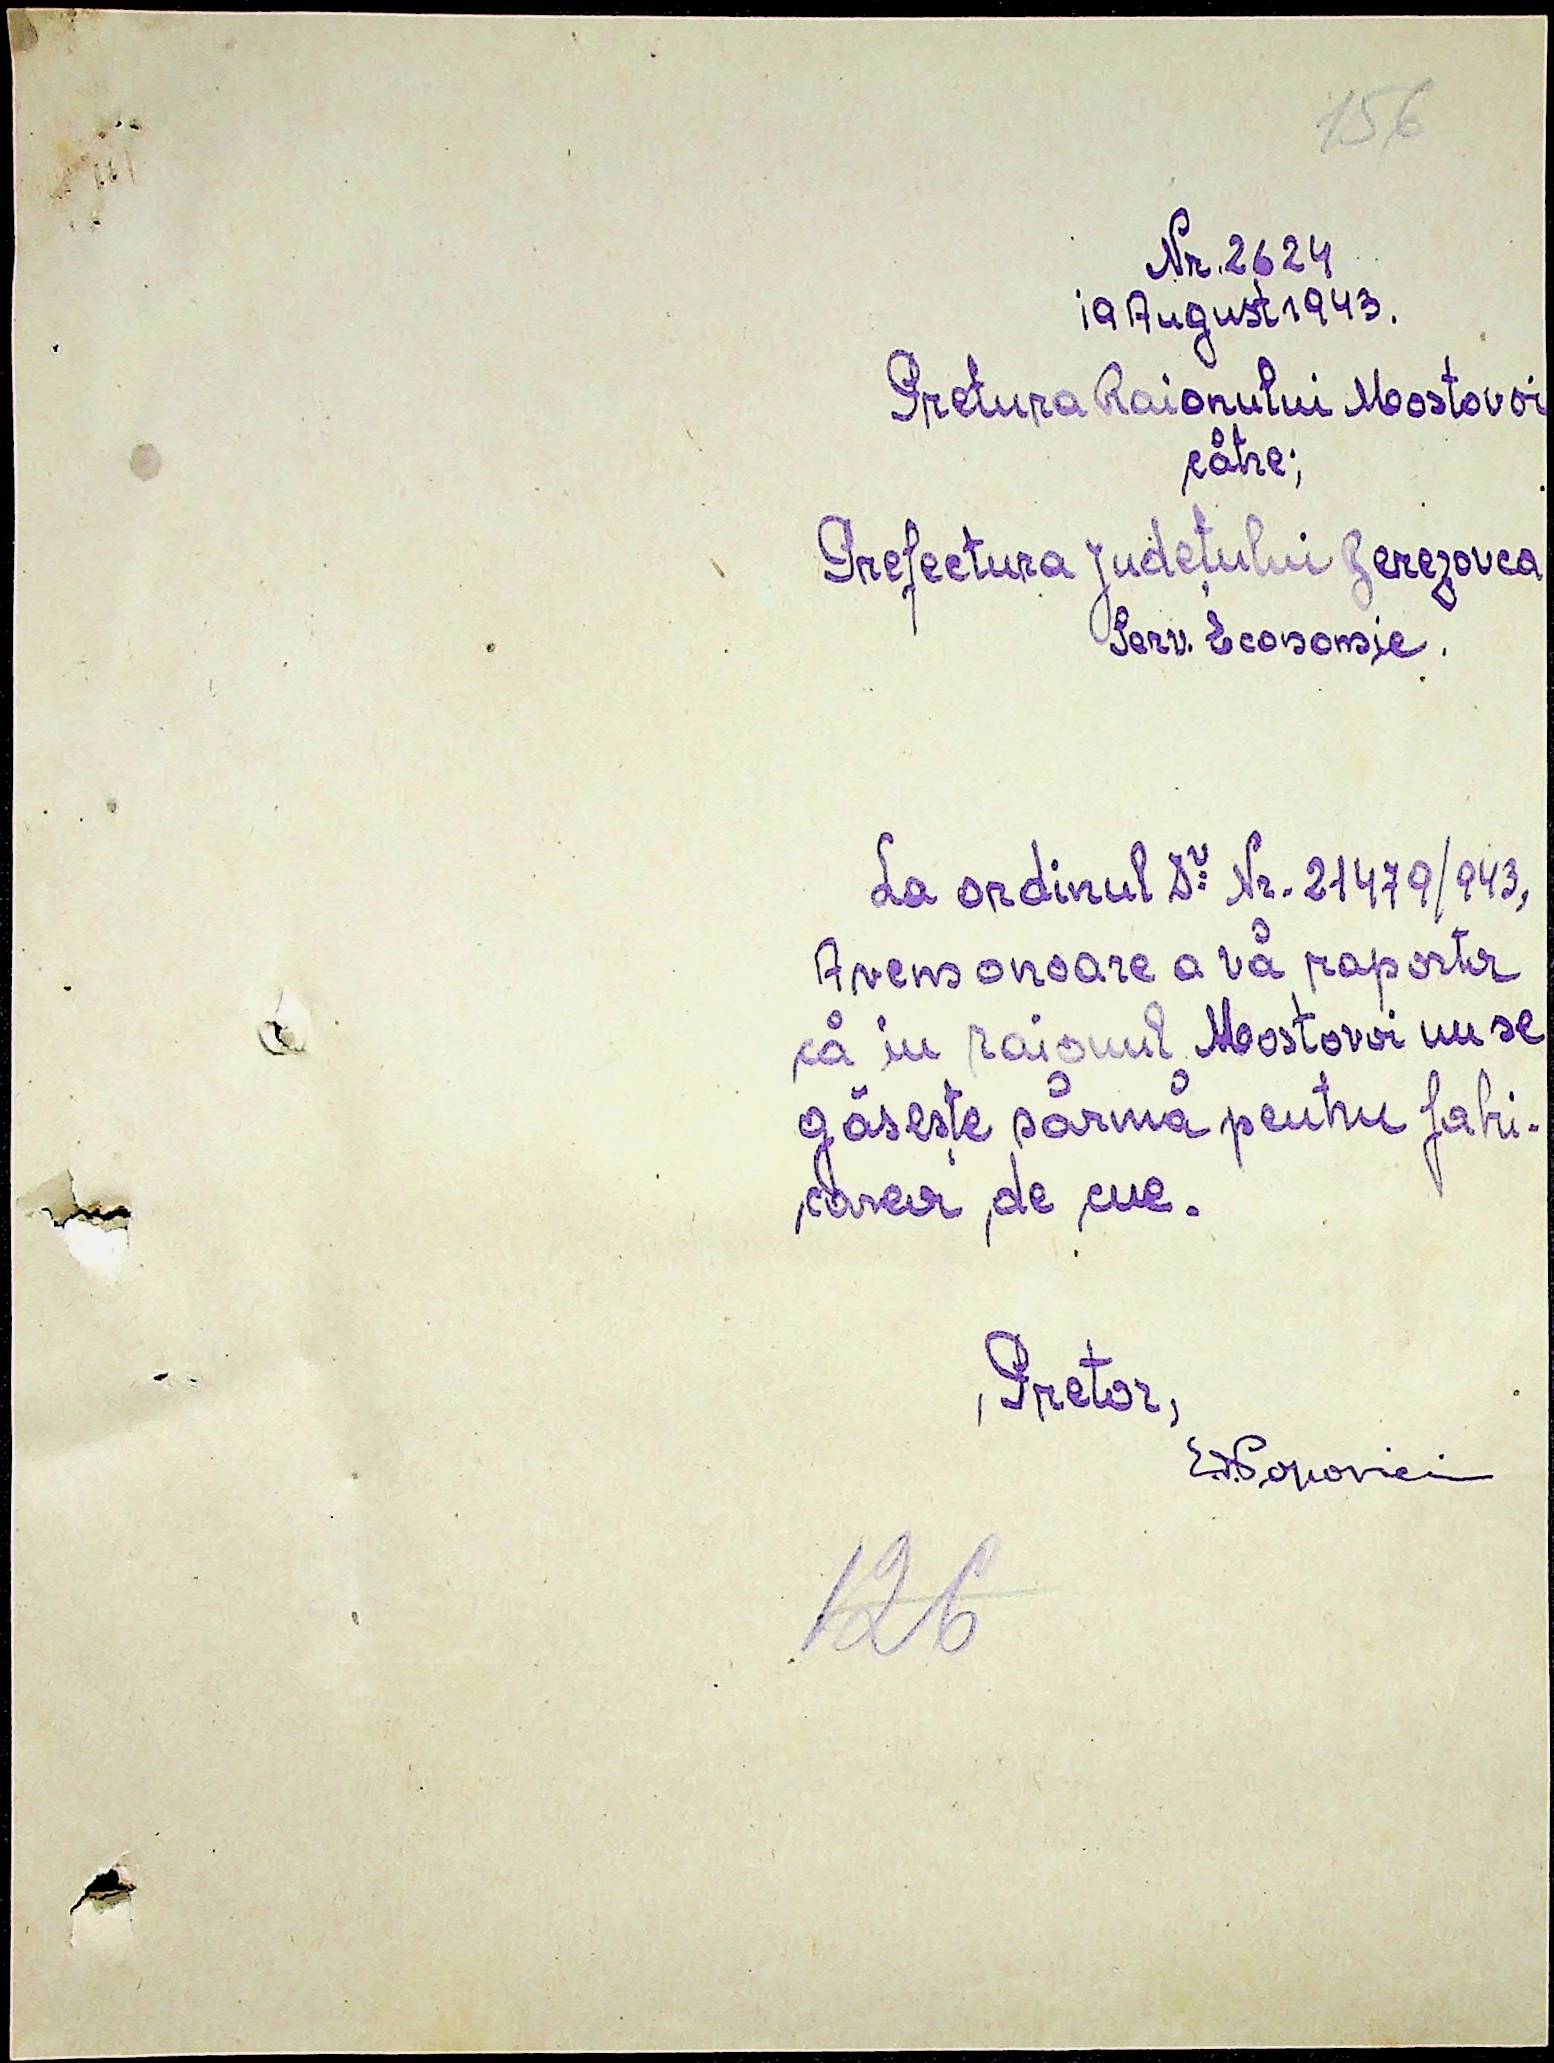 156
Nr. 2624
19 August 1943.
Pretura Raionului Mostovoi
către;
Prefectura Județului Berezovca
Serv. Economic.
La ordinul Dv: Nr. 21479/943,
Avem onoare a vă raporta
că in raionul Mostovoi nu se
găsește sârmă pentru fabri-
carea de cue.
Pretor,
Popovici
126